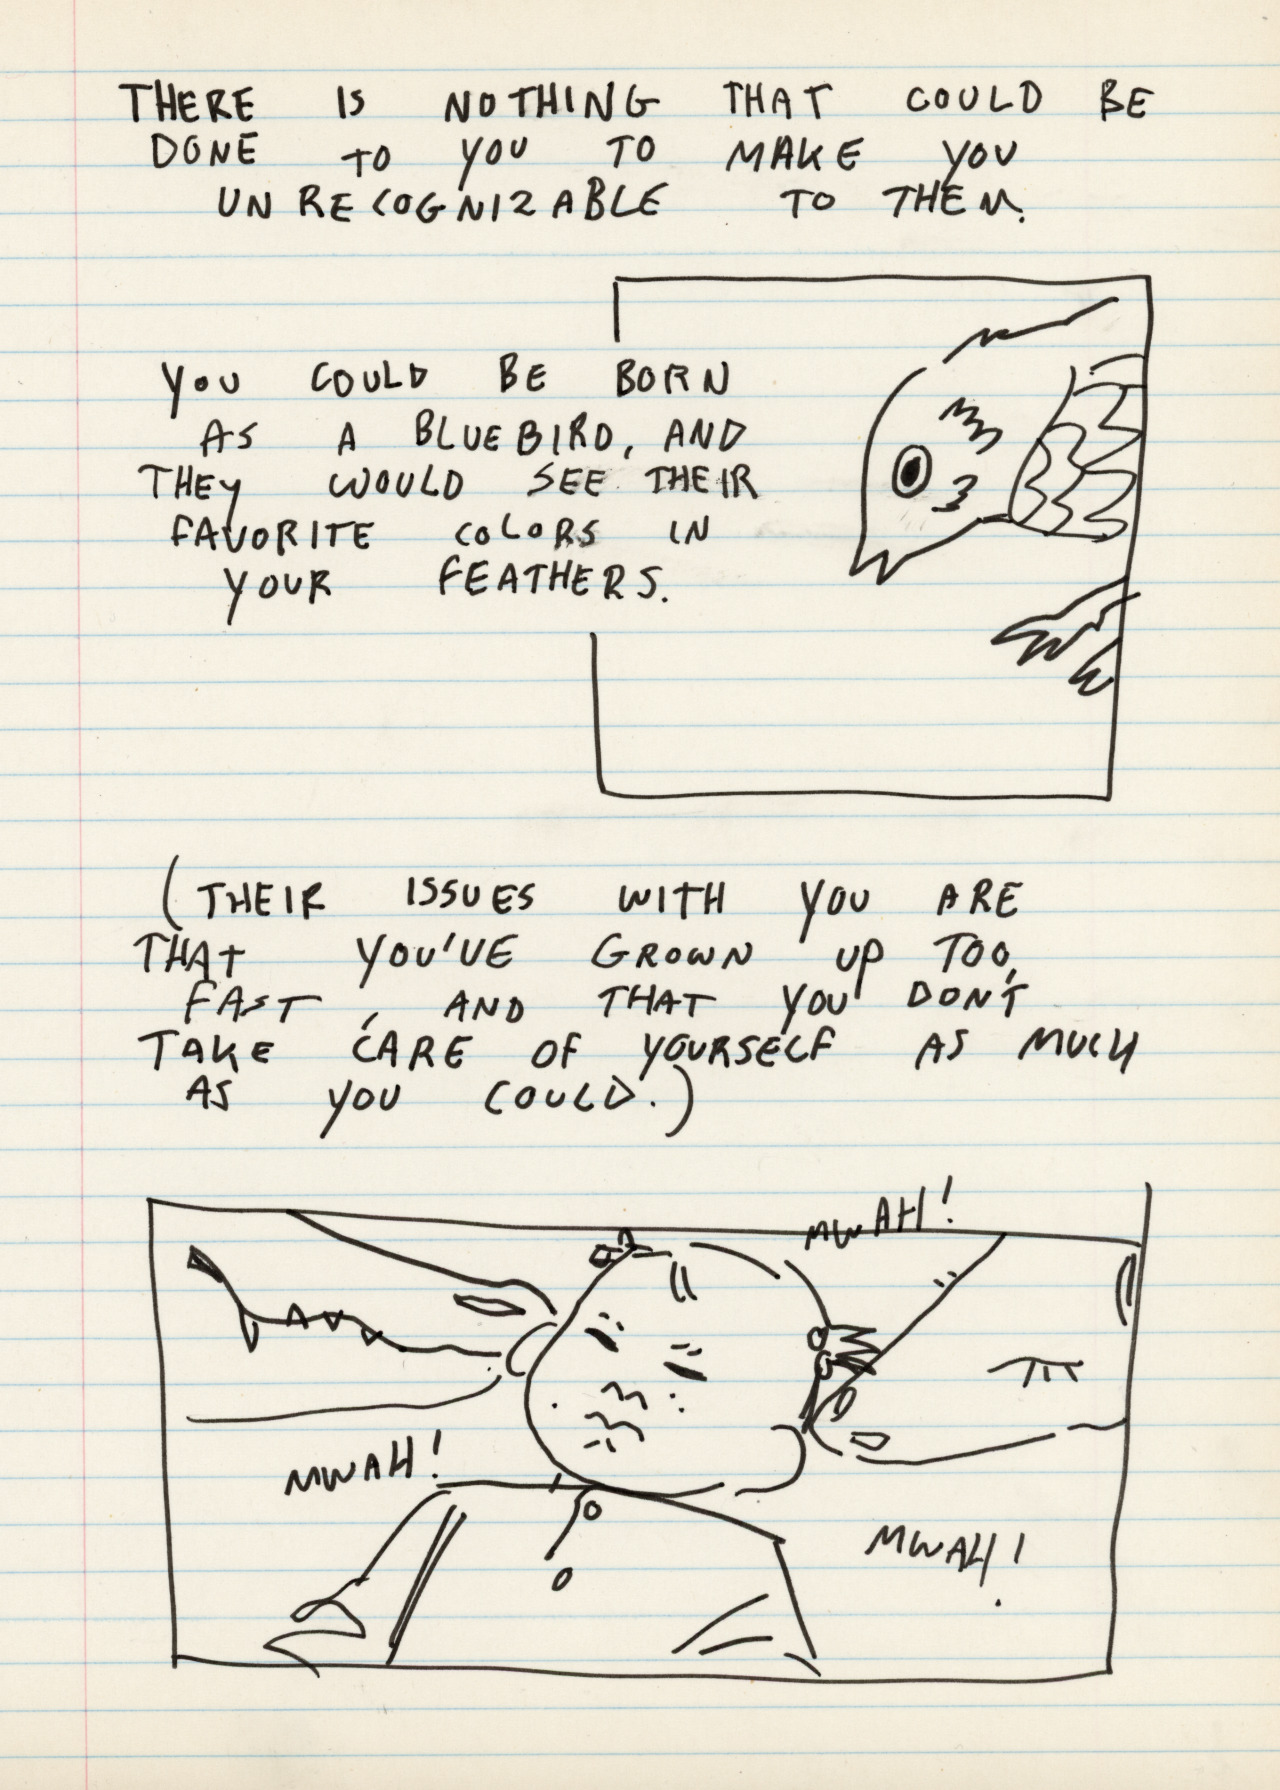 THERE IS NOTHING THAT COULD BE
DONE TO YOU TO MAKE YOU
UNRECOGNIZABLE TO THEM.
YOU COULD BE BORN
AS A BLUEBIRD, AND
THEY WOULD SEE THEIR
FAVORITE COLORS IN
YOUR FEATHERS.
(THEIR ISSUES WITH YOU ARE
THAT YOU'VE GROWN UP TOO
FAST, AND THAT YOU DON'T
TAKE CARE OF YOURSELF AS MUCH
AS YOU COULD.)
MWAH!
MWAH!
MWAH!